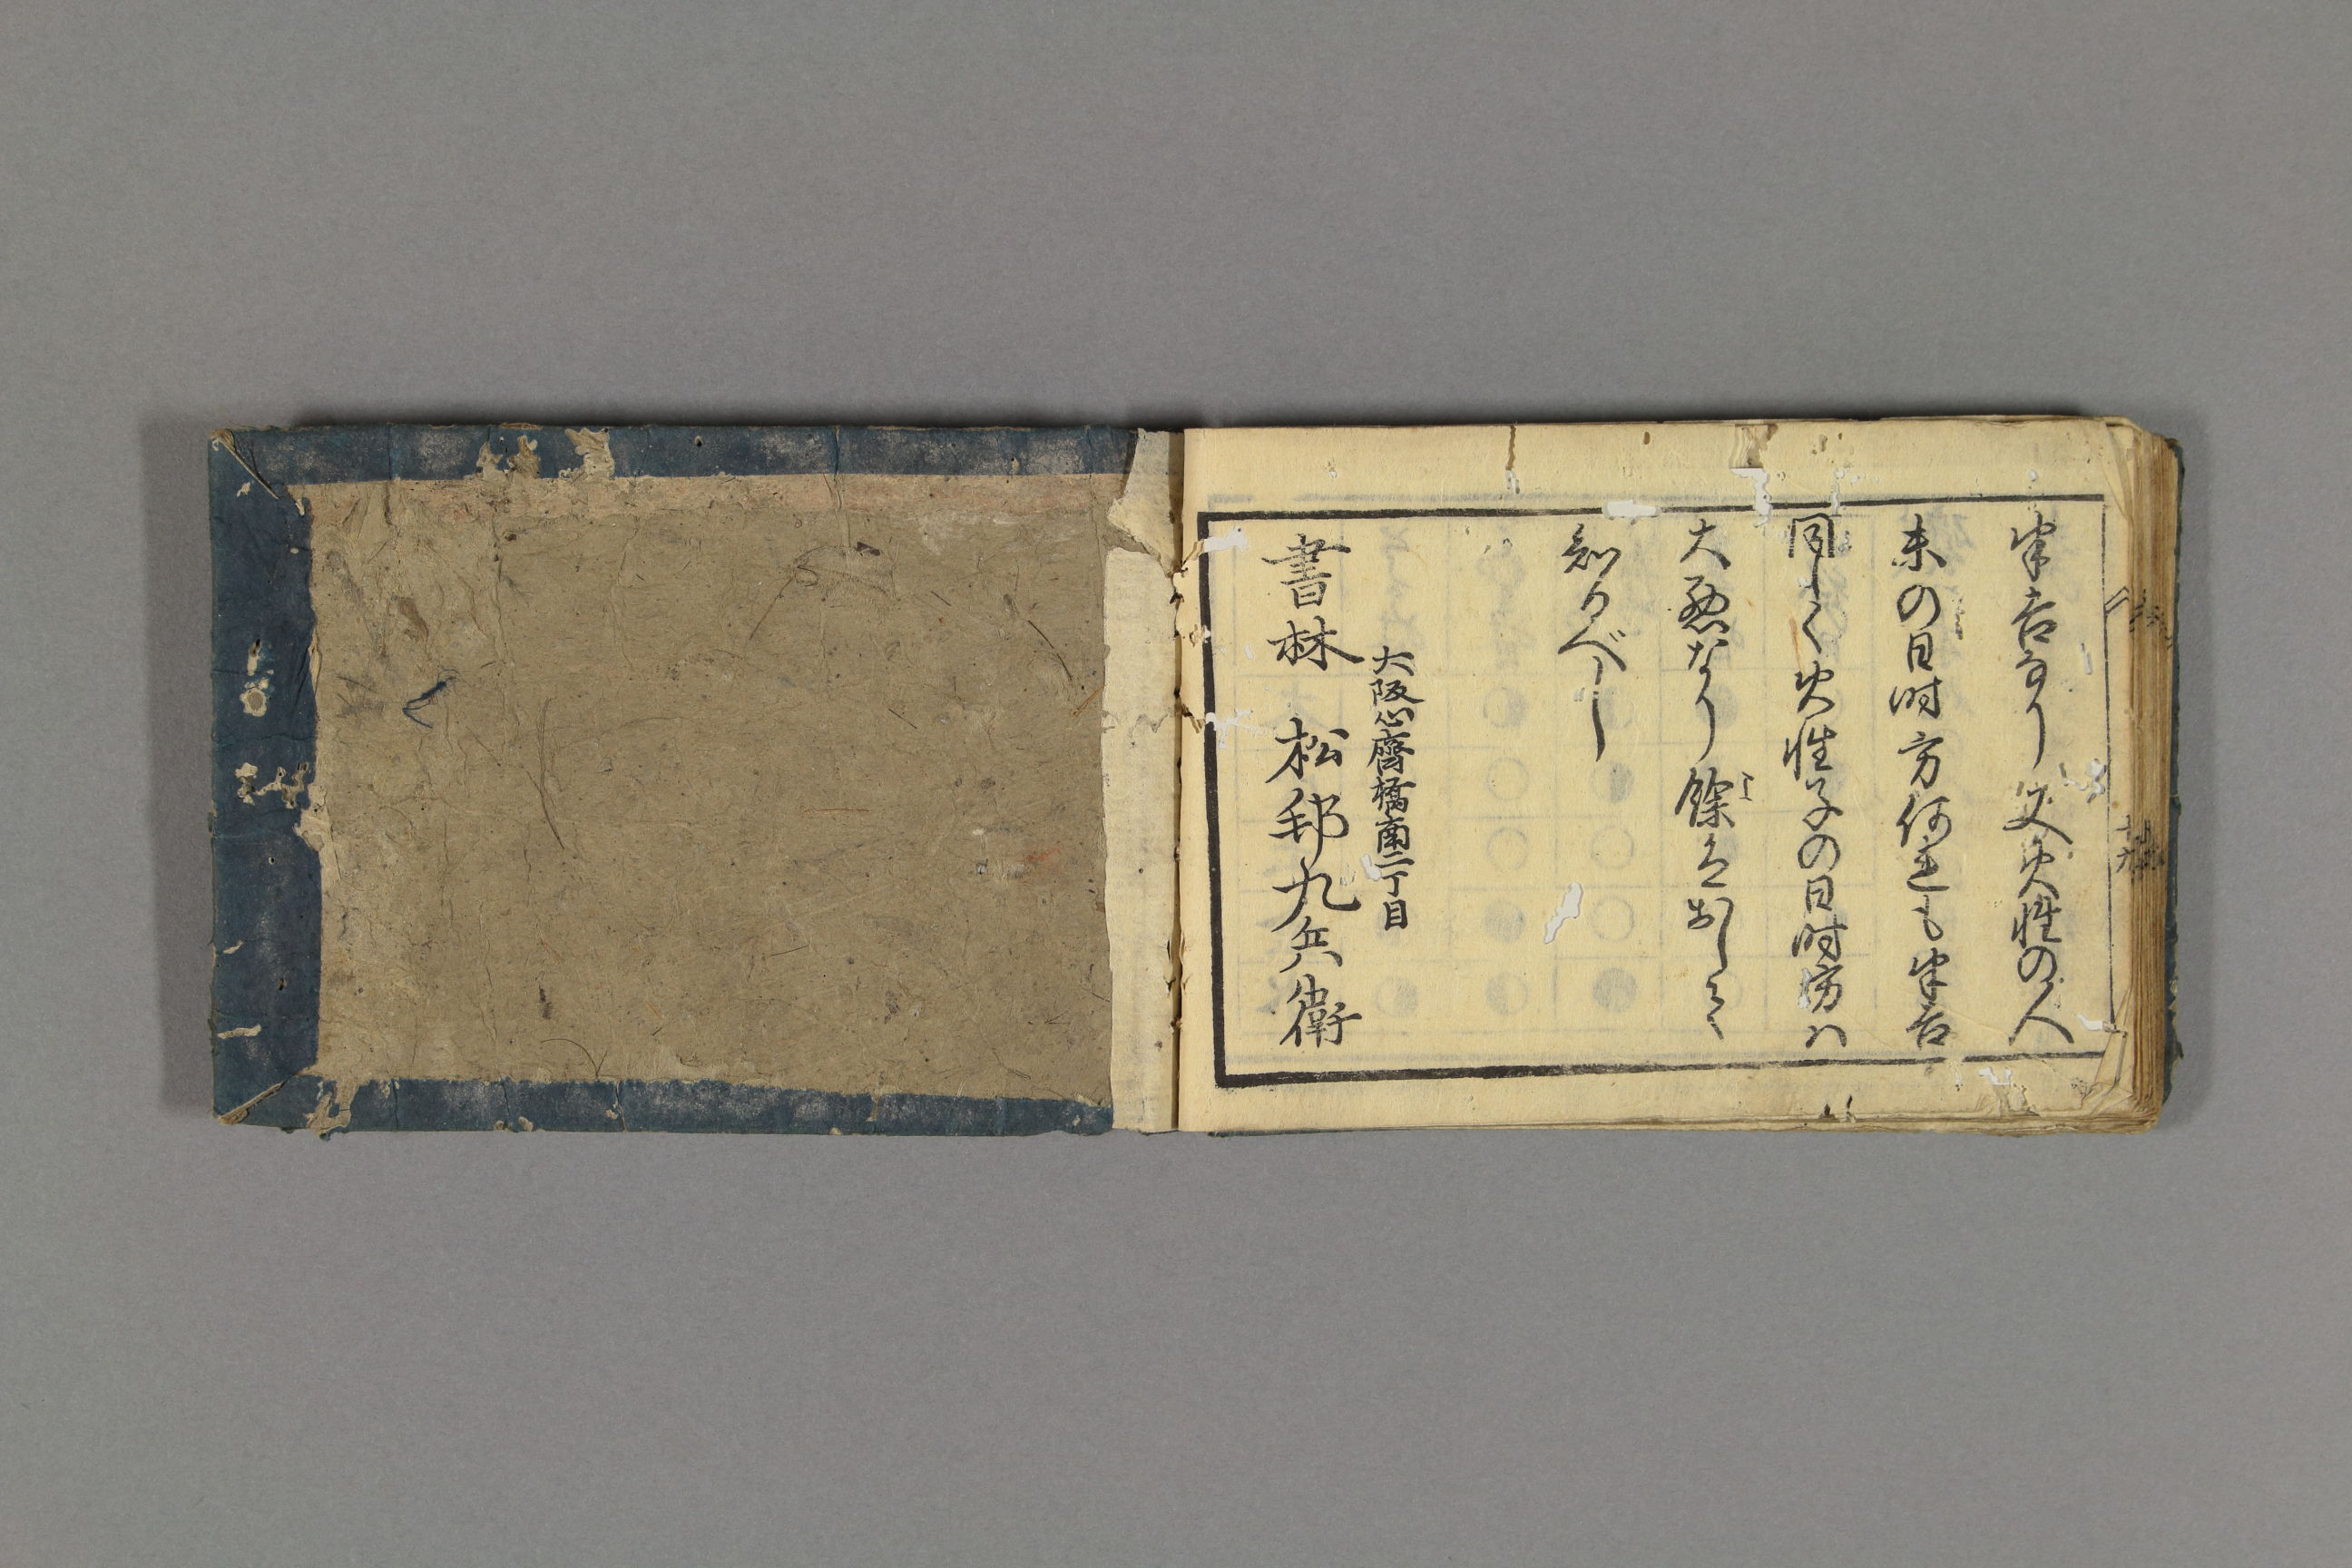 半吉なり又火性の人
未の日時方何連も半吉
同しく火性子の日時方ハ
大悪なり餘はおして
知るべし
大阪心齋橋南二丁目
書林 松邨九兵衛